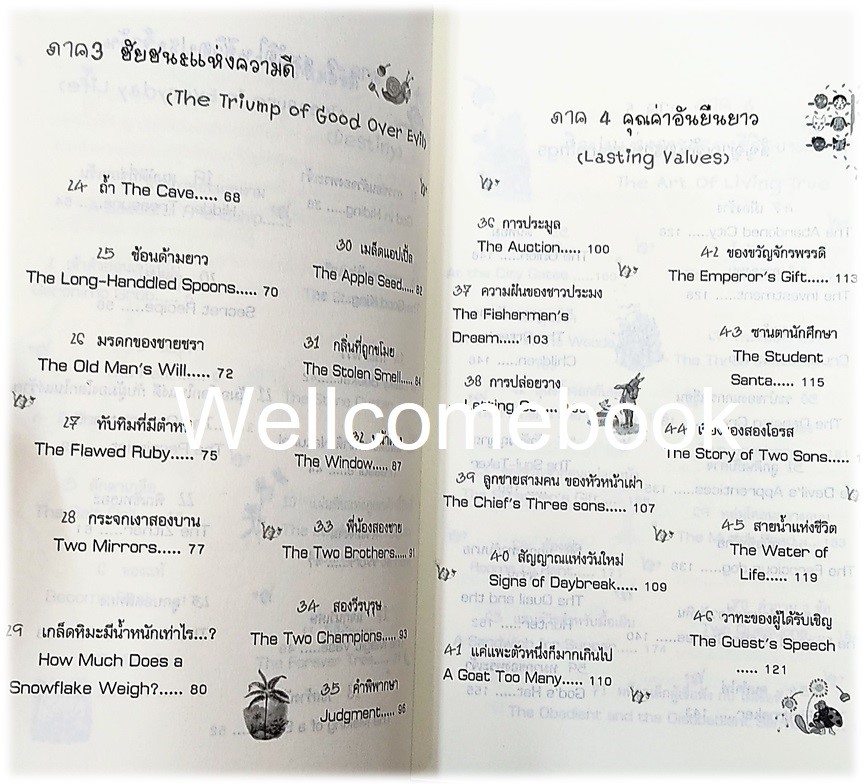 ภาค3 ชัยชนะแห่งความดี
(The Triump of Good Over Evil)
24 ถ้ำ The Cave..... 68
25 ช้อนด้ามยาว
The Long-Handdled Spoons..... 70
26 มรดกของชายชรา
The Old Man's Will..... 72
27 ทับทิมที่มีตำหนิ
The Flawed Ruby..... 75
28 กระจกเงาสองบาน
Two Mirrors..... 77
29 เกล็ดหิมะมีน้ำหนักเท่าไร...?
How Much Does a
Snowflake Weigh?..... 80
30 เมล็ดแอปเปิ้ล
The Apple Seed..... 82
31 กลิ่นที่ถูกขโมย
The Stolen Smell..... 84
32
The Window..... 87
33 พี่น้องสองชาย
The Two Brothers..... 91
34 สองวีรบุรุษ
The Two Champions..... 93
35 คำพิพากษา
Judgment..... 96
ภาค 4 คุณค่าอันยืนยาว
(Lasting Values)
36 การประมูล
The Auction..... 100
37 ความฝันของชาวประมง
The Fisherman's
Dream..... 103
38 การปล่อยวาง
39 ลูกชายสามคน ของหัวหน้าเผ่า
The Chief's Three sons..... 107
40 สัญญาณแห่งวันใหม่
Signs of Daybreak..... 109
41 แค่แพะตัวหนึ่งก็มากเกินไป
A Goat Too Many..... 110
42 ของขวัญจักรพรรดิ
The Emperor's Gift..... 113
43 ซานตานักศึกษา
The Student
Santa..... 115
44 ของสองโอรส
The Story of Two Sons.....
45 สายน้ำแห่งชีวิต
The Water of
Life..... 119
46 วาทะของผู้ได้รับเชิญ
The Guest's Speech
..... 121
Wellcomebook